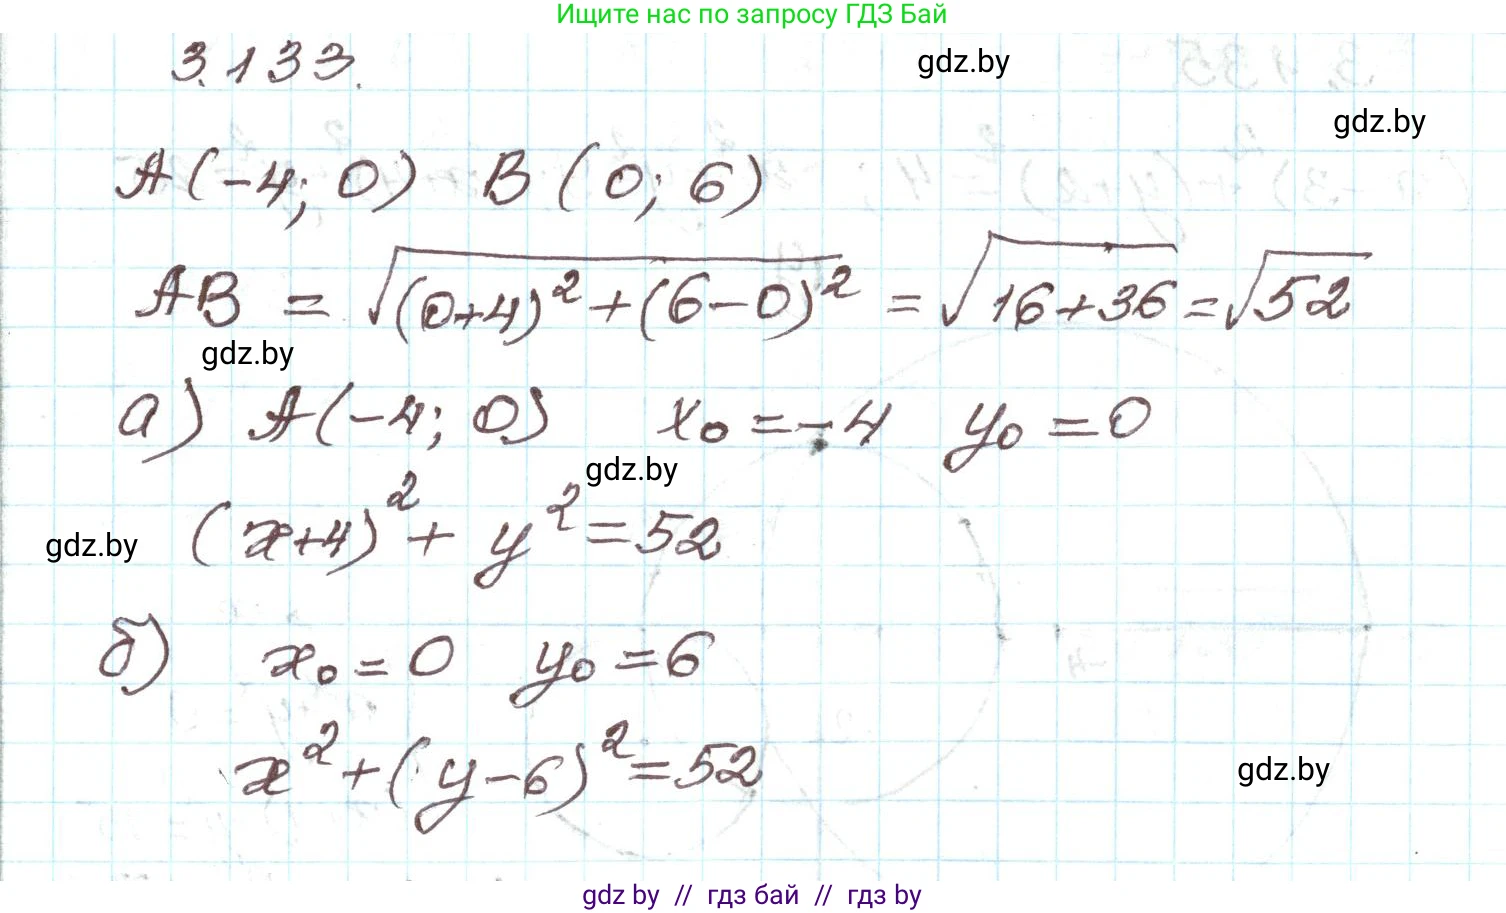 Ищите нас по запросу ГДЗ Бай
3.133.
gdz.by
gdz.by
A(-4; 0) B(0; 6)
AB = √((0+4)²+(6-0)²) = √(16+36) = √52
gdz.by
а) A(-4; 0) x₀ = -4 y₀ = 0
gdz.by
(x+4)² + y² = 52
gdz.by
б) x₀ = 0 y₀ = 6
x² + (y-6)² = 52
gdz.by
gdz by // гдз бай // гдз by